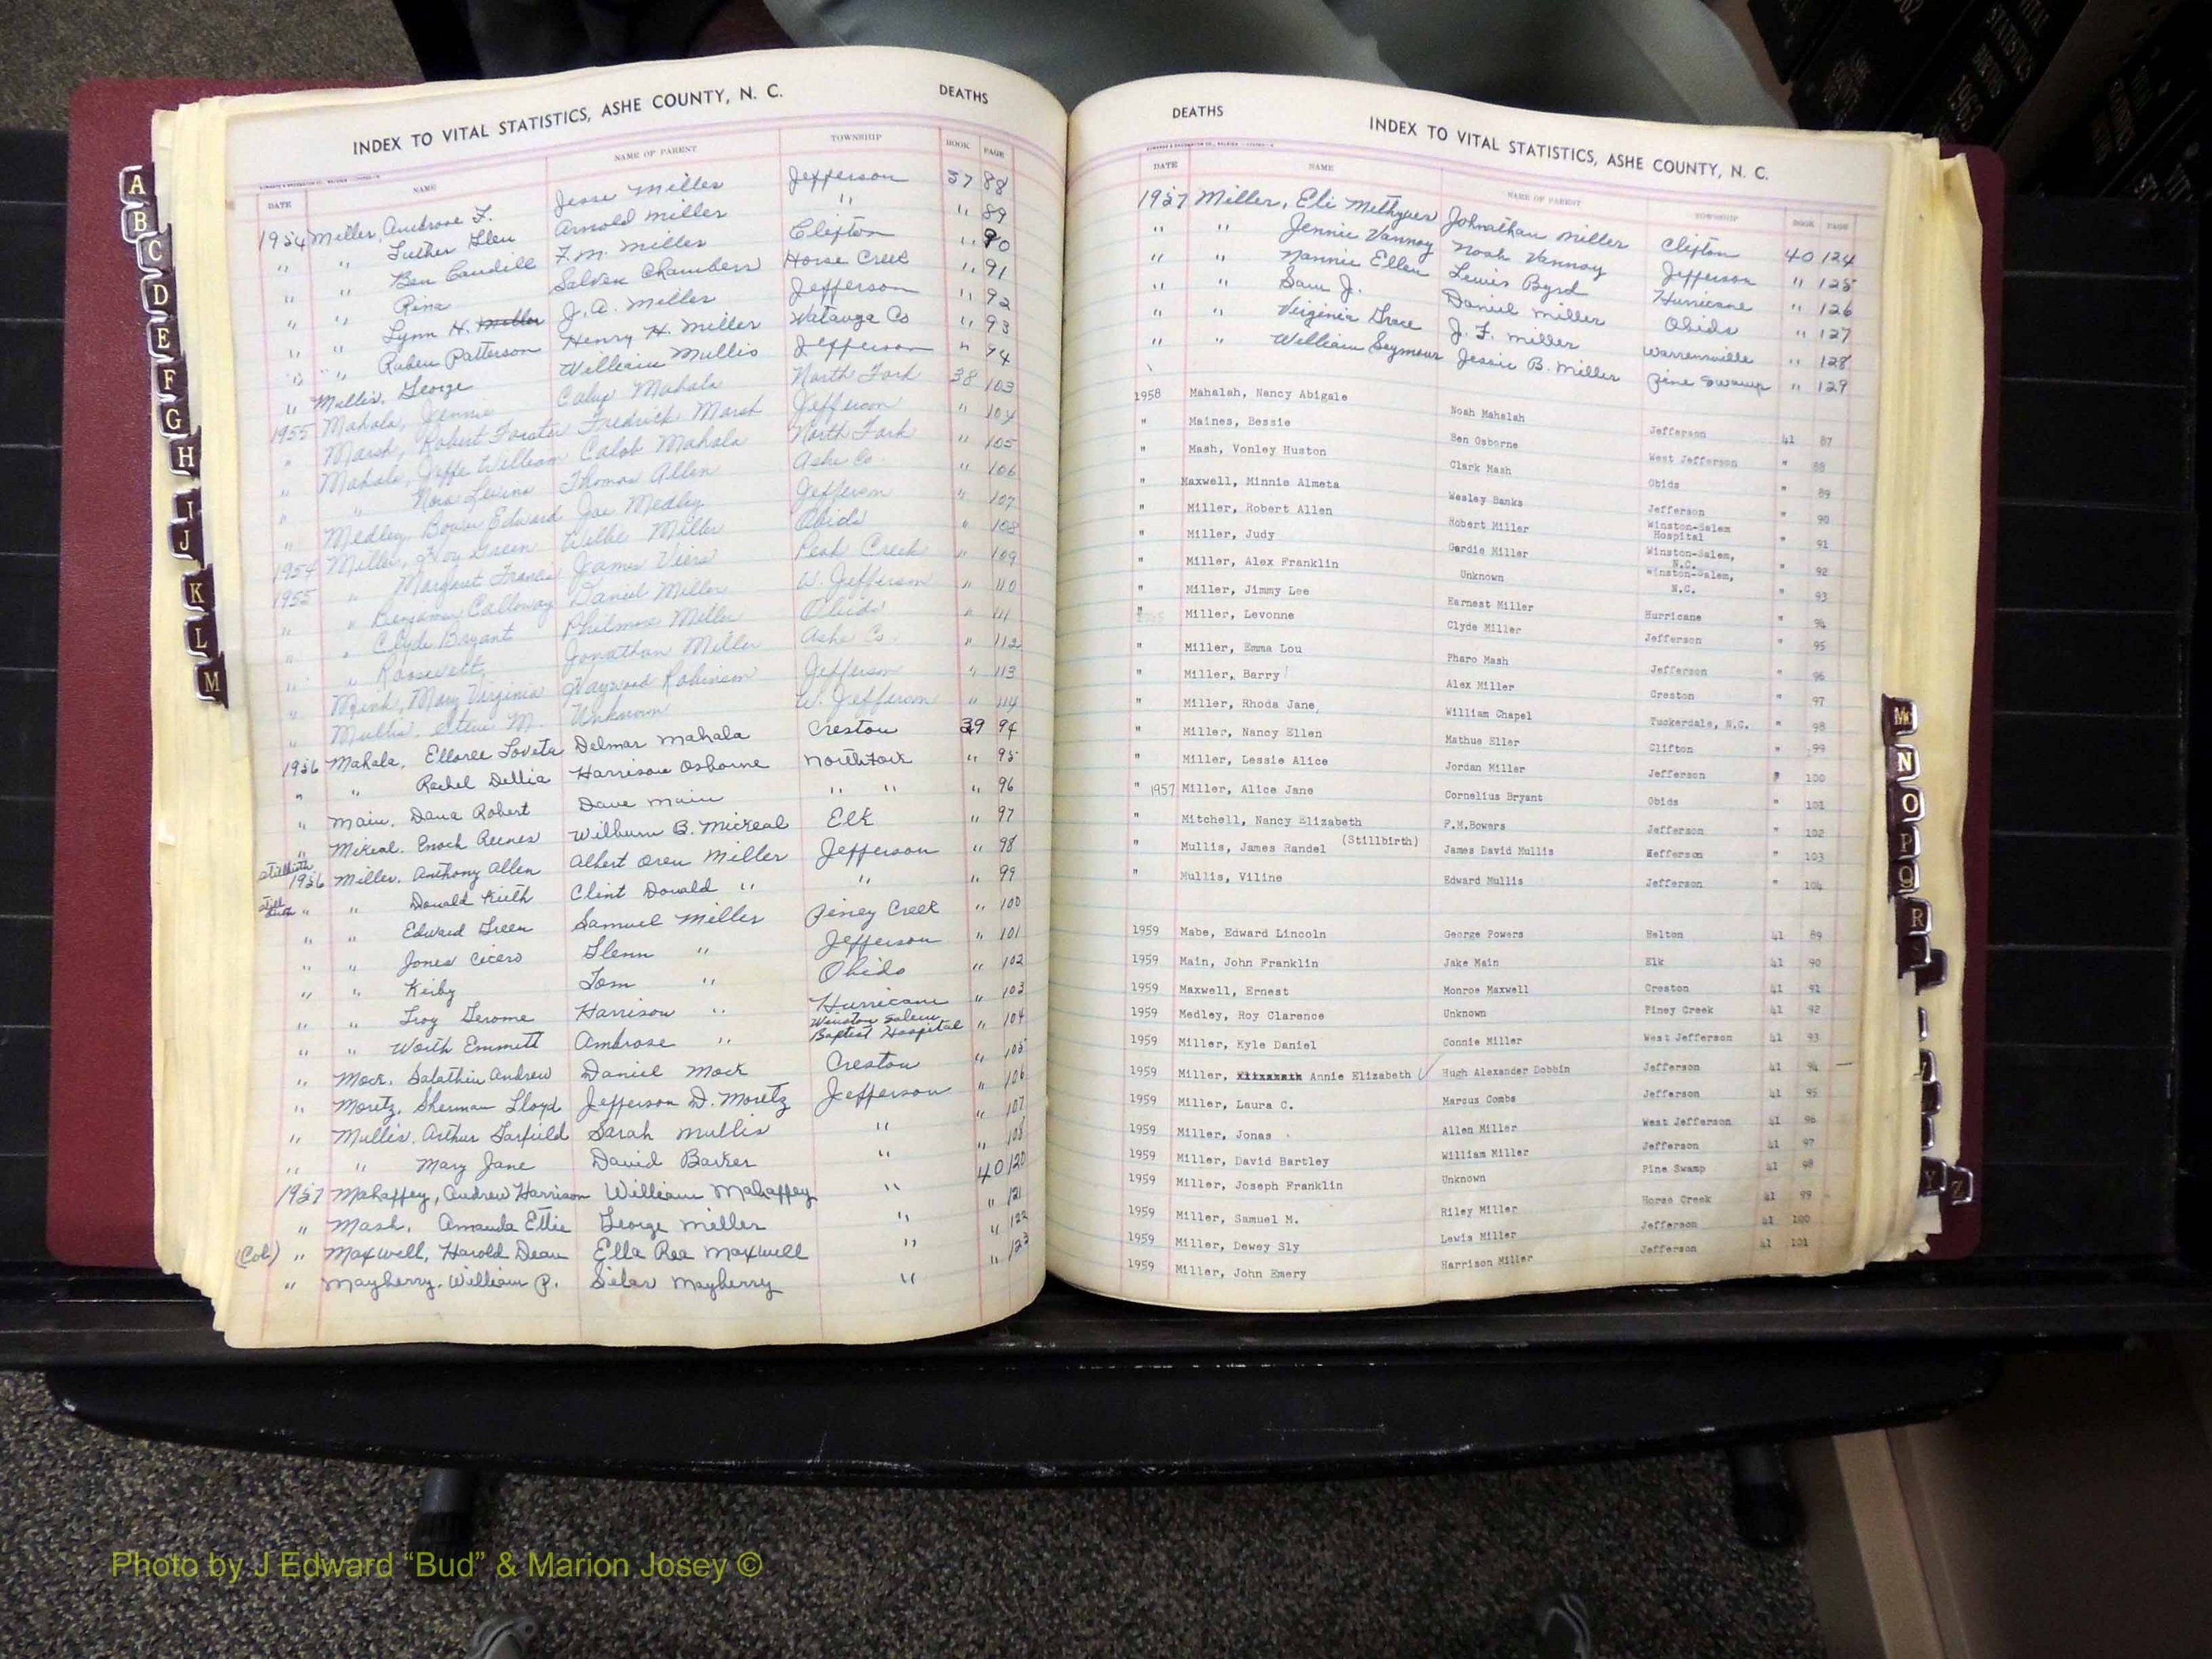 INDEX TO VITAL STATISTICS, ASHE COUNTY, N. C. DEATHS
DATE NAME NAME OF PARENT TOWNSHIP BOOK PAGE
1954 Miller, Ambrose F. Jesse Miller Jefferson 37 88
" " Luther Glen Arnold Miller " " 89
" " Ben Caudill F. M. Miller Clifton " 90
" " Rina Salven Chambers Horse Creek " 91
" " Lynn H. J. A. Miller Jefferson " 92
" " Ruben Patterson Henry H. Miller Watauga Co " 93
" Mullis, George William Mullis Jefferson " 94
1955 Mahala, Jennie Calup Mahala North Fork 38 103
" Marsh, Robert Forster Fredrick Marsh Jefferson " 104
" Mahala, Jeffe William Calob Mahala North Fork " 105
" " Nora Levina Thomas Allen Ashe Co. " 106
" Medley, Bower Edward Joe Medley Jefferson " 107
1954 Miller, Roy Green Wilbe Miller Obids " 108
1955 " Margaret Francis James Viers Peak Creek " 109
" " Benjamin Calloway Daniel Miller W. Jefferson " 110
" " Clyde Bryant Philmore Miller Obids " 111
" " Roosevelt Jonathan Miller Ashe Co. " 112
" Mink, Mary Virginia Haywood Robinson Jefferson " 113
" Mullis, M. Unknown W. Jefferson " 114
1956 Mahala, Elloree Loveta Delmar Mahala Creston 39 94
" " Rachel Dellia Harrison Osborne North Fork " 95
" Main, Dana Robert Dave Main " " " 96
" Mikeal, Enoch Reenes Wilburn B. Mickeal Elk " 97
Stillbirth 1956 Miller, Anthony Allen Albert Oren Miller Jefferson " 98
Still " " Donald Kieth Clint Donald " " " 99
" " Edward Green Samuel Miller Piney Creek " 100
" " Jones Cicero Glenn " Jefferson " 101
" " Kerby Tom " Obids " 102
" " Troy Jerome Harrison " Hurricane " 103
" " Worth Emmett Ambrose " Winston Salem Baptist Hospital " 104
" Mock, Salathiu Andrew Daniel Mock Creston " 105
" Moretz, Sherman Lloyd Jefferson D. Moretz Jefferson " 106
" Mullis, Arthur Garfield Sarah Mullis " " 107
" " Mary Jane David Barker " " 108
1957 Mahaffey, Andrew Harrison William Mahaffey " 40 120
" Mash, Amanda Ettie George Miller " " 121
(Col) " Maxwell, Harold Dean Ella Rea Maxwell " " 122
" Mayberry, William P. Silas Mayberry " " 123
DEATHS INDEX TO VITAL STATISTICS, ASHE COUNTY, N. C.
DATE NAME NAME OF PARENT TOWNSHIP BOOK PAGE
1957 Miller, Eli Methyues Johnathan Miller Clifton 40 124
" " Jennie Vannoy Noah Vannoy Jefferson " 125
" " Nannie Ellen Lewis Byrd Hurricane " 126
" " Sam J. Daniel Miller Obids " 127
" " Virginia Grace J. F. Miller Warrensville " 128
" " William Seymour Jessie B. Miller Pine Swamp " 129
1958 Mahalah, Nancy Abigale Noah Mahalah Jefferson 41 87
" Maines, Bessie Ben Osborne West Jefferson " 88
" Mash, Vonley Huston Clark Mash Obids " 89
" Maxwell, Minnie Almeta Wesley Banks Jefferson " 90
" Miller, Robert Allen Robert Miller Winston-Salem Hospital " 91
" Miller, Judy Gerdie Miller Winston-Salem, N.C. " 92
" Miller, Alex Franklin Unknown Winston-Salem, N.C. " 93
" Miller, Jimmy Lee Earnest Miller Hurricane " 94
" Miller, Levonne Clyde Miller Jefferson " 95
" Miller, Emma Lou Pharo Mash Jefferson " 96
" Miller, Barry Alex Miller Creston " 97
" Miller, Rhoda Jane, William Chapel Tuckerdale, N.C. " 98
" Miller, Nancy Ellen Mathue Eller Clifton " 99
" Miller, Lessie Alice Jordan Miller Jefferson " 100
" 1957 Miller, Alice Jane Cornelius Bryant Obids " 101
" Mitchell, Nancy Elizabeth F.M.Bowers Jefferson " 102
" Mullis, James Randel (Stillbirth) James David Mullis Hefferson " 103
" Mullis, Viline Edward Mullis Jefferson " 104
1959 Mabe, Edward Lincoln George Powers Helton 41 89
1959 Main, John Franklin Jake Main Elk 41 90
1959 Maxwell, Ernest Monroe Maxwell Creston 41 91
1959 Medley, Roy Clarence Unknown Piney Creek 41 92
1959 Miller, Kyle Daniel Connie Miller West Jefferson 41 93
1959 Miller, Annie Elizabeth Hugh Alexander Dobbin Jefferson 41 94
1959 Miller, Laura C. Marcus Combs Jefferson 41 95
1959 Miller, Jonas Allen Miller West Jefferson 41 96
1959 Miller, David Bartley William Miller Jefferson 41 97
1959 Miller, Joseph Franklin Unknown Pine Swamp 41 98
1959 Miller, Samuel M. Riley Miller Horse Creek 41 99
1959 Miller, Dewey Sly Lewis Miller Jefferson 41 100
1959 Miller, John Emery Harrison Miller Jefferson 41 101
A
B
C
D
E
F
G
H
I
J
K
L
M
Mc
N
O
P
Q
R
S
Y Z
VITAL STATISTICS
1963
Photo by J Edward “Bud” & Marion Josey ©